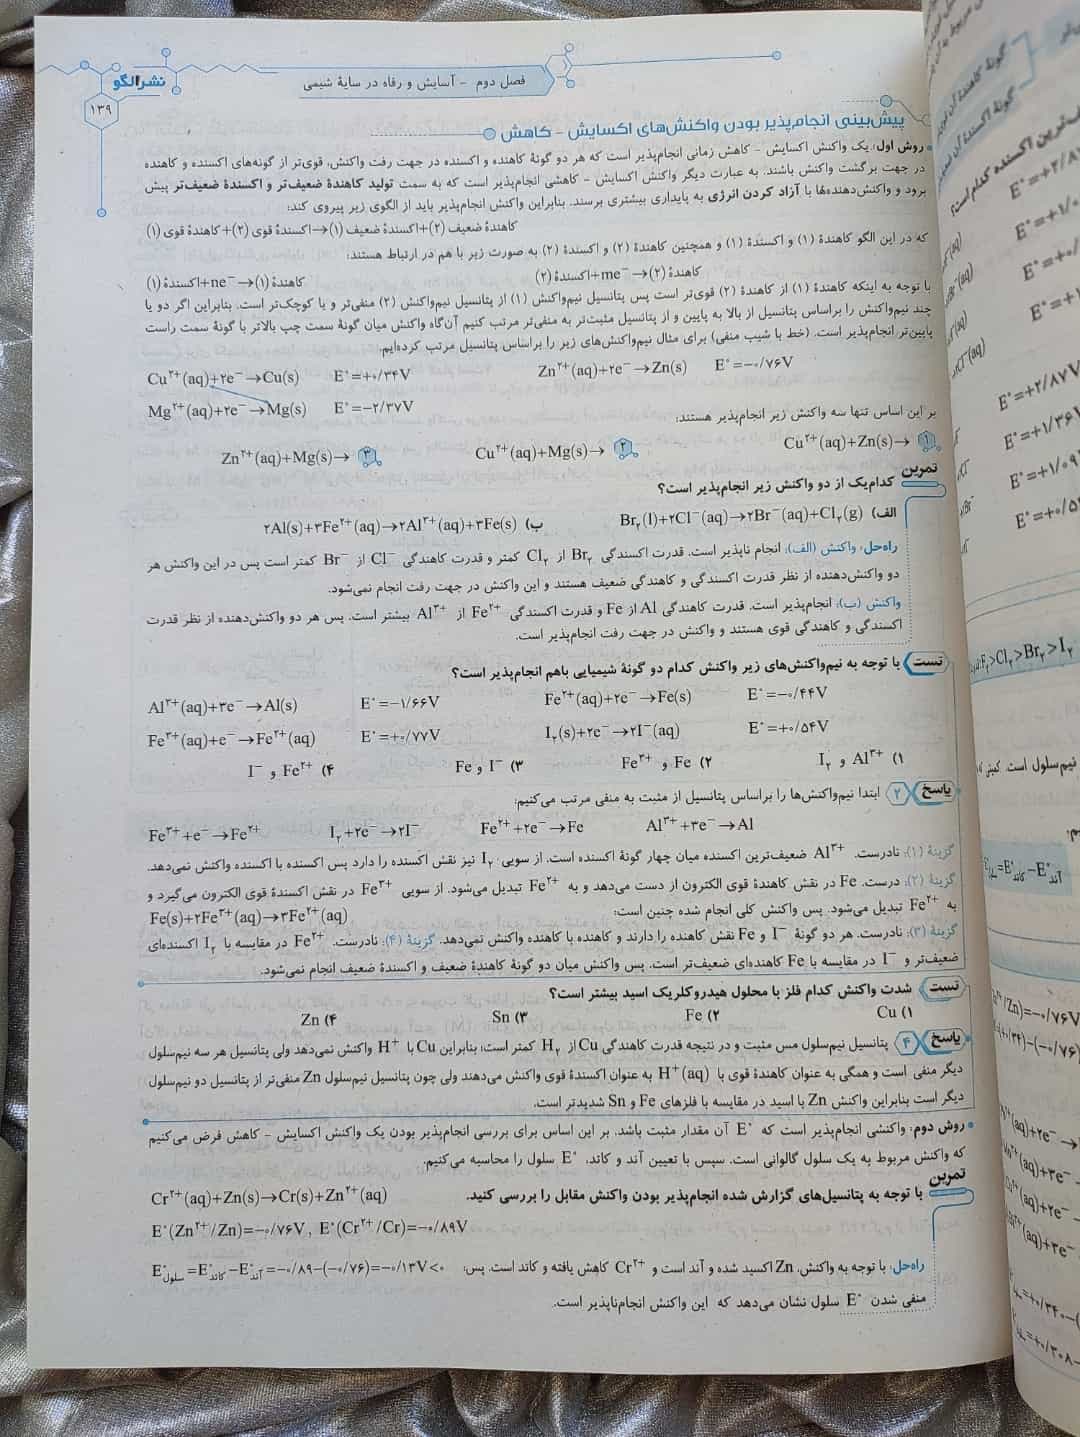 نشر الگو
۱۳۹
فصل دوم - آسایش و رفاه در سایهٔ شیمی
پیش‌بینی انجام‌پذیر بودن واکنش‌های اکسایش - کاهش
• روش اول: یک واکنش اکسایش - کاهش زمانی انجام‌پذیر است که هر دو گونهٔ کاهنده و اکسنده در جهت رفت واکنش، قوی‌تر از گونه‌های اکسنده و کاهنده
در جهت برگشت واکنش باشند. به عبارت دیگر واکنش اکسایش - کاهشی انجام‌پذیر است که به سمت تولید کاهندهٔ ضعیف‌تر و اکسندهٔ ضعیف‌تر پیش
برود و واکنش‌دهنده‌ها با آزاد کردن انرژی به پایداری بیشتری برسند. بنابراین واکنش انجام‌پذیر باید از الگوی زیر پیروی کند:
کاهندهٔ ضعیف (۲)+اکسندهٔ ضعیف (۱)→اکسندهٔ قوی (۲)+کاهندهٔ قوی (۱)
که در این الگو کاهندهٔ (۱) و اکسندهٔ (۱) و همچنین کاهندهٔ (۲) و اکسندهٔ (۲) به صورت زیر با هم در ارتباط هستند:
کاهندهٔ (۲)→me⁻+اکسندهٔ (۲) کاهندهٔ (۱)→ne⁻+اکسندهٔ (۱)
با توجه به اینکه کاهندهٔ (۱) از کاهندهٔ (۲) قوی‌تر است پس پتانسیل نیم‌واکنش (۱) از پتانسیل نیم‌واکنش (۲) منفی‌تر و یا کوچک‌تر است. بنابراین اگر دو یا
چند نیم‌واکنش را براساس پتانسیل از بالا به پایین و از پتانسیل مثبت‌تر به منفی‌تر مرتب کنیم آن‌گاه واکنش میان گونهٔ سمت چپ بالاتر با گونهٔ سمت راست
پایین‌تر انجام‌پذیر است. (خط با شیب منفی) برای مثال نیم‌واکنش‌های زیر را براساس پتانسیل مرتب کرده‌ایم.
Cu²⁺(aq)+۲e⁻→Cu(s) E°=+۰/۳۴V Zn²⁺(aq)+۲e⁻→Zn(s) E°=−۰/۷۶V
Mg²⁺(aq)+۲e⁻→Mg(s) E°=−۲/۳۷V
بر این اساس تنها سه واکنش زیر انجام‌پذیر هستند:
۱ Cu²⁺(aq)+Zn(s)→ ۲ Cu²⁺(aq)+Mg(s)→ ۳ Zn²⁺(aq)+Mg(s)→
تمرین کدام‌یک از دو واکنش زیر انجام‌پذیر است؟
الف) Br₂(l)+۲Cl⁻(aq)→۲Br⁻(aq)+Cl₂(g) ب) ۲Al(s)+۳Fe²⁺(aq)→۲Al³⁺(aq)+۳Fe(s)
راه‌حل: واکنش (الف): انجام ناپذیر است. قدرت اکسندگی Br₂ از Cl₂ کمتر و قدرت کاهندگی Cl⁻ از Br⁻ کمتر است پس در این واکنش هر
دو واکنش‌دهنده از نظر قدرت اکسندگی و کاهندگی ضعیف هستند و این واکنش در جهت رفت انجام نمی‌شود.
واکنش (ب): انجام‌پذیر است. قدرت کاهندگی Al از Fe و قدرت اکسندگی Fe²⁺ از Al³⁺ بیشتر است. پس هر دو واکنش‌دهنده از نظر قدرت
اکسندگی و کاهندگی قوی هستند و واکنش در جهت رفت انجام‌پذیر است.
تست با توجه به نیم‌واکنش‌های زیر واکنش کدام دو گونهٔ شیمیایی باهم انجام‌پذیر است؟
Al³⁺(aq)+۳e⁻→Al(s) E°=−۱/۶۶V Fe²⁺(aq)+۲e⁻→Fe(s) E°=−۰/۴۴V
Fe³⁺(aq)+e⁻→Fe²⁺(aq) E°=+۰/۷۷V I₂(s)+۲e⁻→۲I⁻(aq) E°=+۰/۵۴V
۱) Al³⁺ و I₂ ۲) Fe و Fe³⁺ ۳) I⁻ و Fe ۴) Fe²⁺ و I⁻
پاسخ ۲ ابتدا نیم‌واکنش‌ها را براساس پتانسیل از مثبت به منفی مرتب می‌کنیم:
Fe³⁺+e⁻→Fe²⁺ I₂+۲e⁻→۲I⁻ Fe²⁺+۲e⁻→Fe Al³⁺+۳e⁻→Al
گزینهٔ (۱): نادرست. Al³⁺ ضعیف‌ترین اکسنده میان چهار گونهٔ اکسنده است. از سویی I₂ نیز نقش اکسنده را دارد پس اکسنده با اکسنده واکنش نمی‌دهد.
گزینهٔ (۲): درست. Fe در نقش کاهندهٔ قوی الکترون از دست می‌دهد و به Fe²⁺ تبدیل می‌شود. از سویی Fe³⁺ در نقش اکسندهٔ قوی الکترون می‌گیرد و
به Fe²⁺ تبدیل می‌شود. پس واکنش کلی انجام شده چنین است: Fe(s)+۲Fe³⁺(aq)→۳Fe²⁺(aq)
گزینهٔ (۳): نادرست. هر دو گونهٔ I⁻ و Fe نقش کاهنده را دارند و کاهنده با کاهنده واکنش نمی‌دهد. گزینهٔ (۴): نادرست. Fe²⁺ در مقایسه با I₂ اکسنده‌ای
ضعیف‌تر و I⁻ در مقایسه با Fe کاهنده‌ای ضعیف‌تر است. پس واکنش میان دو گونهٔ کاهندهٔ ضعیف و اکسندهٔ ضعیف انجام نمی‌شود.
تست شدت واکنش کدام فلز با محلول هیدروکلریک اسید بیشتر است؟
۱) Cu ۲) Fe ۳) Sn ۴) Zn
پاسخ ۴ پتانسیل نیم‌سلول مس مثبت و در نتیجه قدرت کاهندگی Cu از H₂ کمتر است؛ بنابراین Cu با H⁺ واکنش نمی‌دهد ولی پتانسیل هر سه نیم‌سلول
دیگر منفی است و همگی به عنوان کاهندهٔ قوی با H⁺(aq) به عنوان اکسندهٔ قوی واکنش می‌دهند ولی چون پتانسیل نیم‌سلول Zn منفی‌تر از پتانسیل دو نیم‌سلول
دیگر است بنابراین واکنش Zn با اسید در مقایسه با فلزهای Fe و Sn شدیدتر است.
• روش دوم: واکنشی انجام‌پذیر است که E° آن مقدار مثبت باشد. بر این اساس برای بررسی انجام‌پذیر بودن یک واکنش اکسایش - کاهش فرض می‌کنیم
که واکنش مربوط به یک سلول گالوانی است. سپس با تعیین آند و کاتد، E° سلول را محاسبه می‌کنیم.
تمرین با توجه به پتانسیل‌های گزارش شده انجام‌پذیر بودن واکنش مقابل را بررسی کنید. Cr²⁺(aq)+Zn(s)→Cr(s)+Zn²⁺(aq)
E°(Zn²⁺/Zn)=−۰/۷۶V , E°(Cr²⁺/Cr)=−۰/۸۹V
راه‌حل: با توجه به واکنش، Zn اکسید شده و آند است و Cr²⁺ کاهش یافته و کاتد است. پس: E°سلول=E°کاتد−E°آند=−۰/۸۹−(−۰/۷۶)=−۰/۱۳V<۰
منفی شدن E° سلول نشان می‌دهد که این واکنش انجام‌ناپذیر است.
گونهٔ اکسندهٔ آن
E°=+۱/۳۶V
E°=+۲/۸۷V
F₂>Cl₂>Br₂>I₂
نیم‌سلول است.